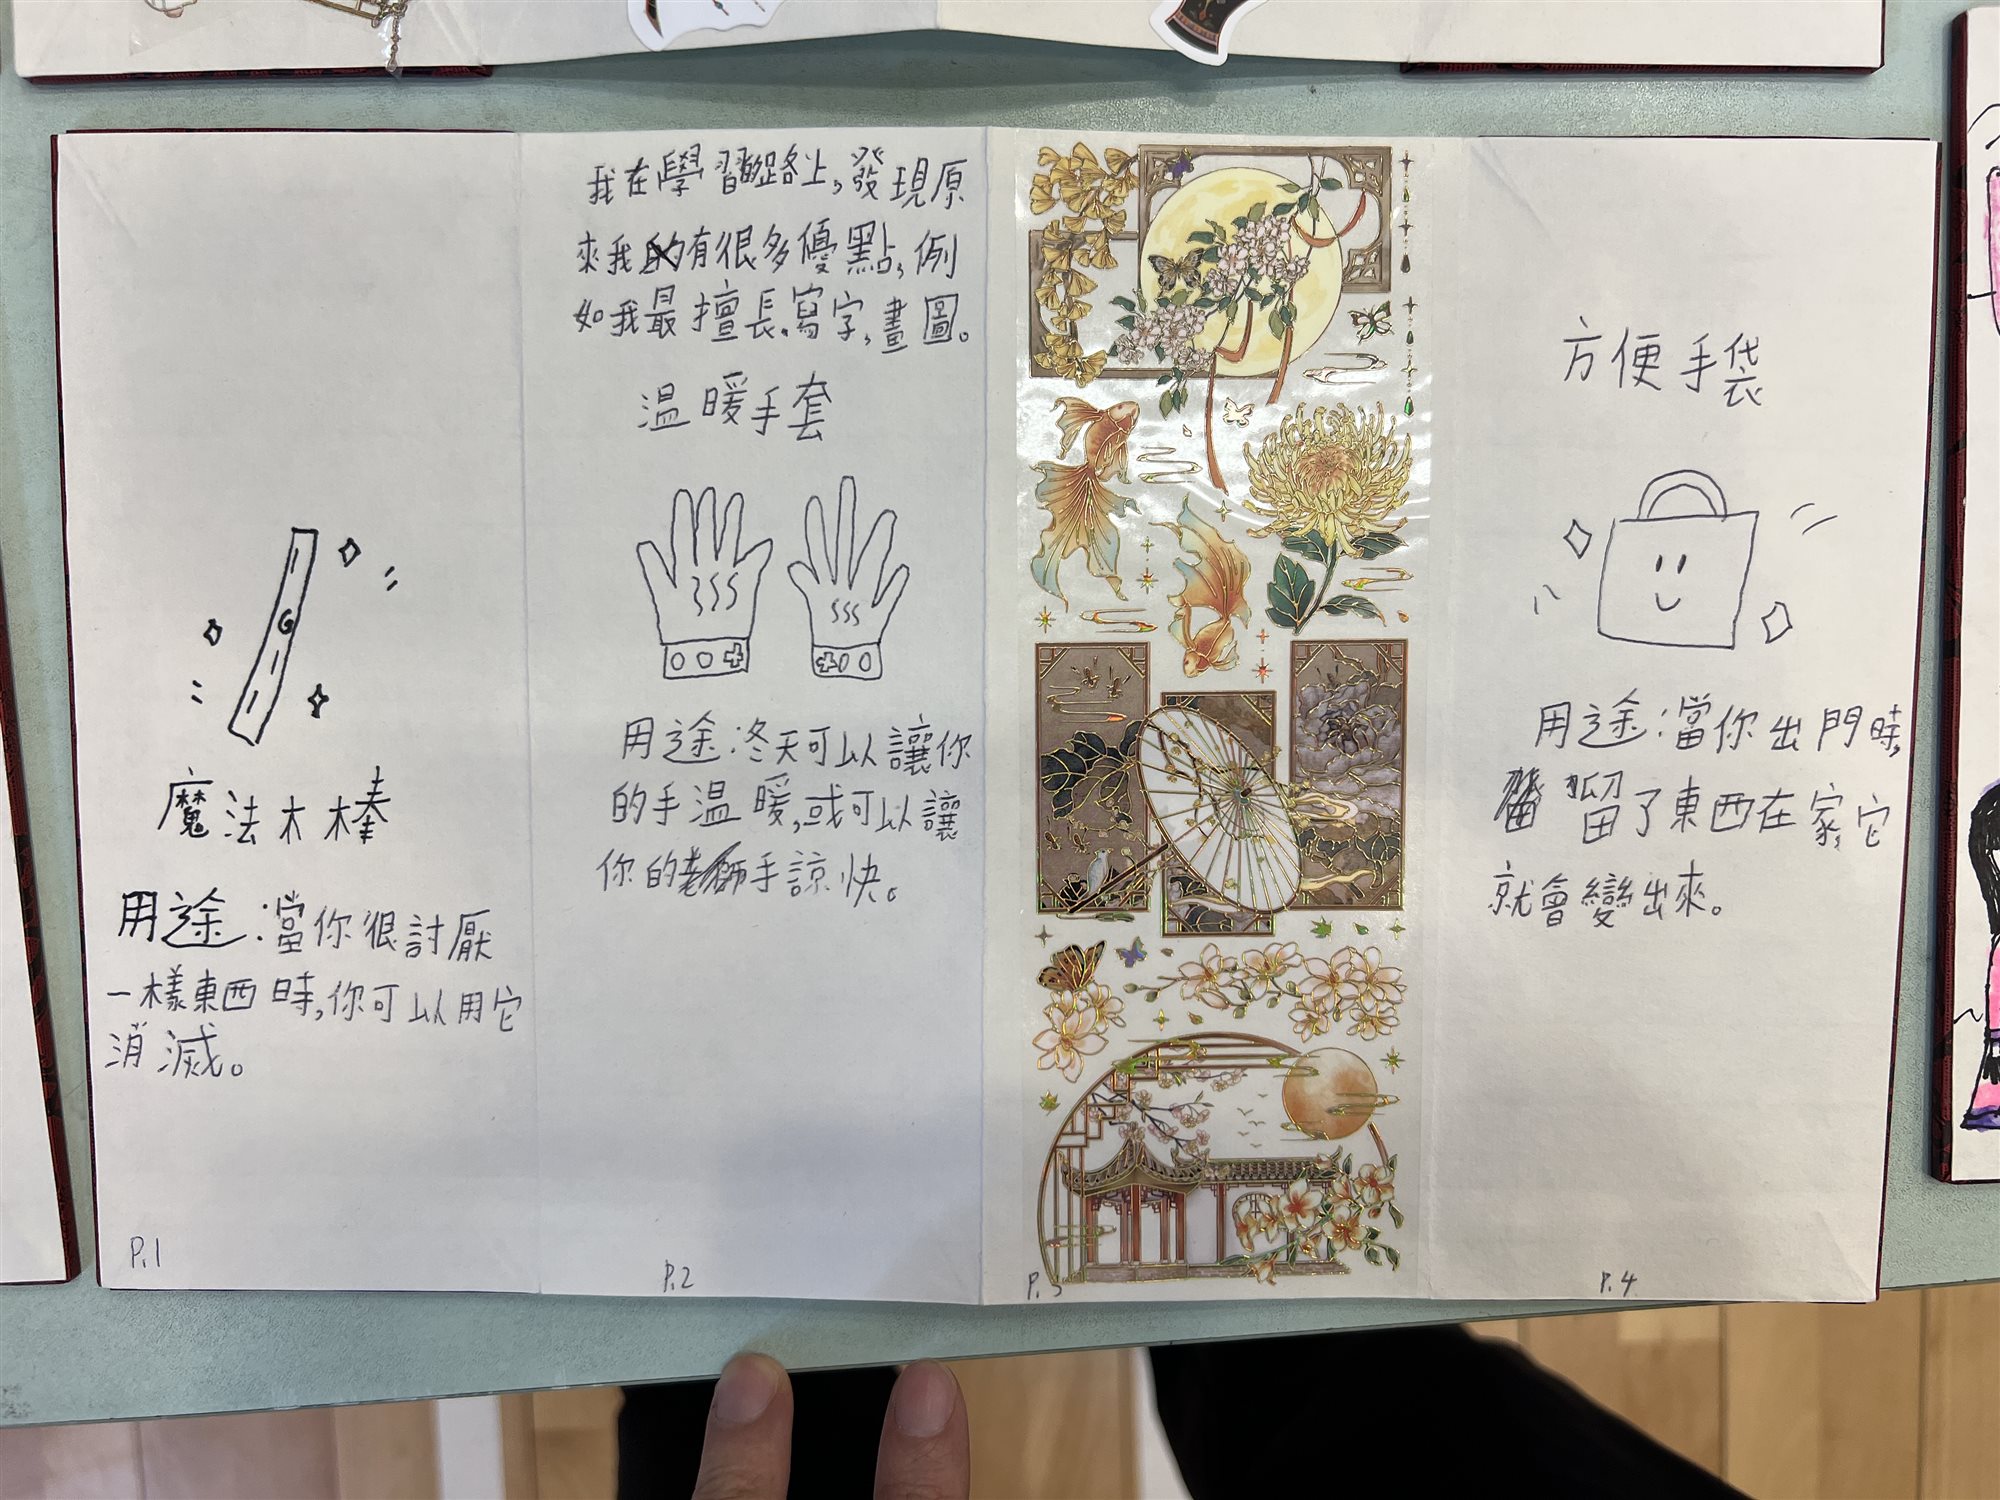 魔法木棒
用途：當你很討厭
一樣東西時，你可以用它
消滅。
P.1
我在學習路上，發現原
來我有很多優點，例
如我最擅長寫字，畫圖。
温暖手套
用途：冬天可以讓你
的手温暖，或可以讓
你的手諒快。
P.2
P.3
方便手袋
用途：當你出門時，
留了東西在家，它
就會變出來。
P.4